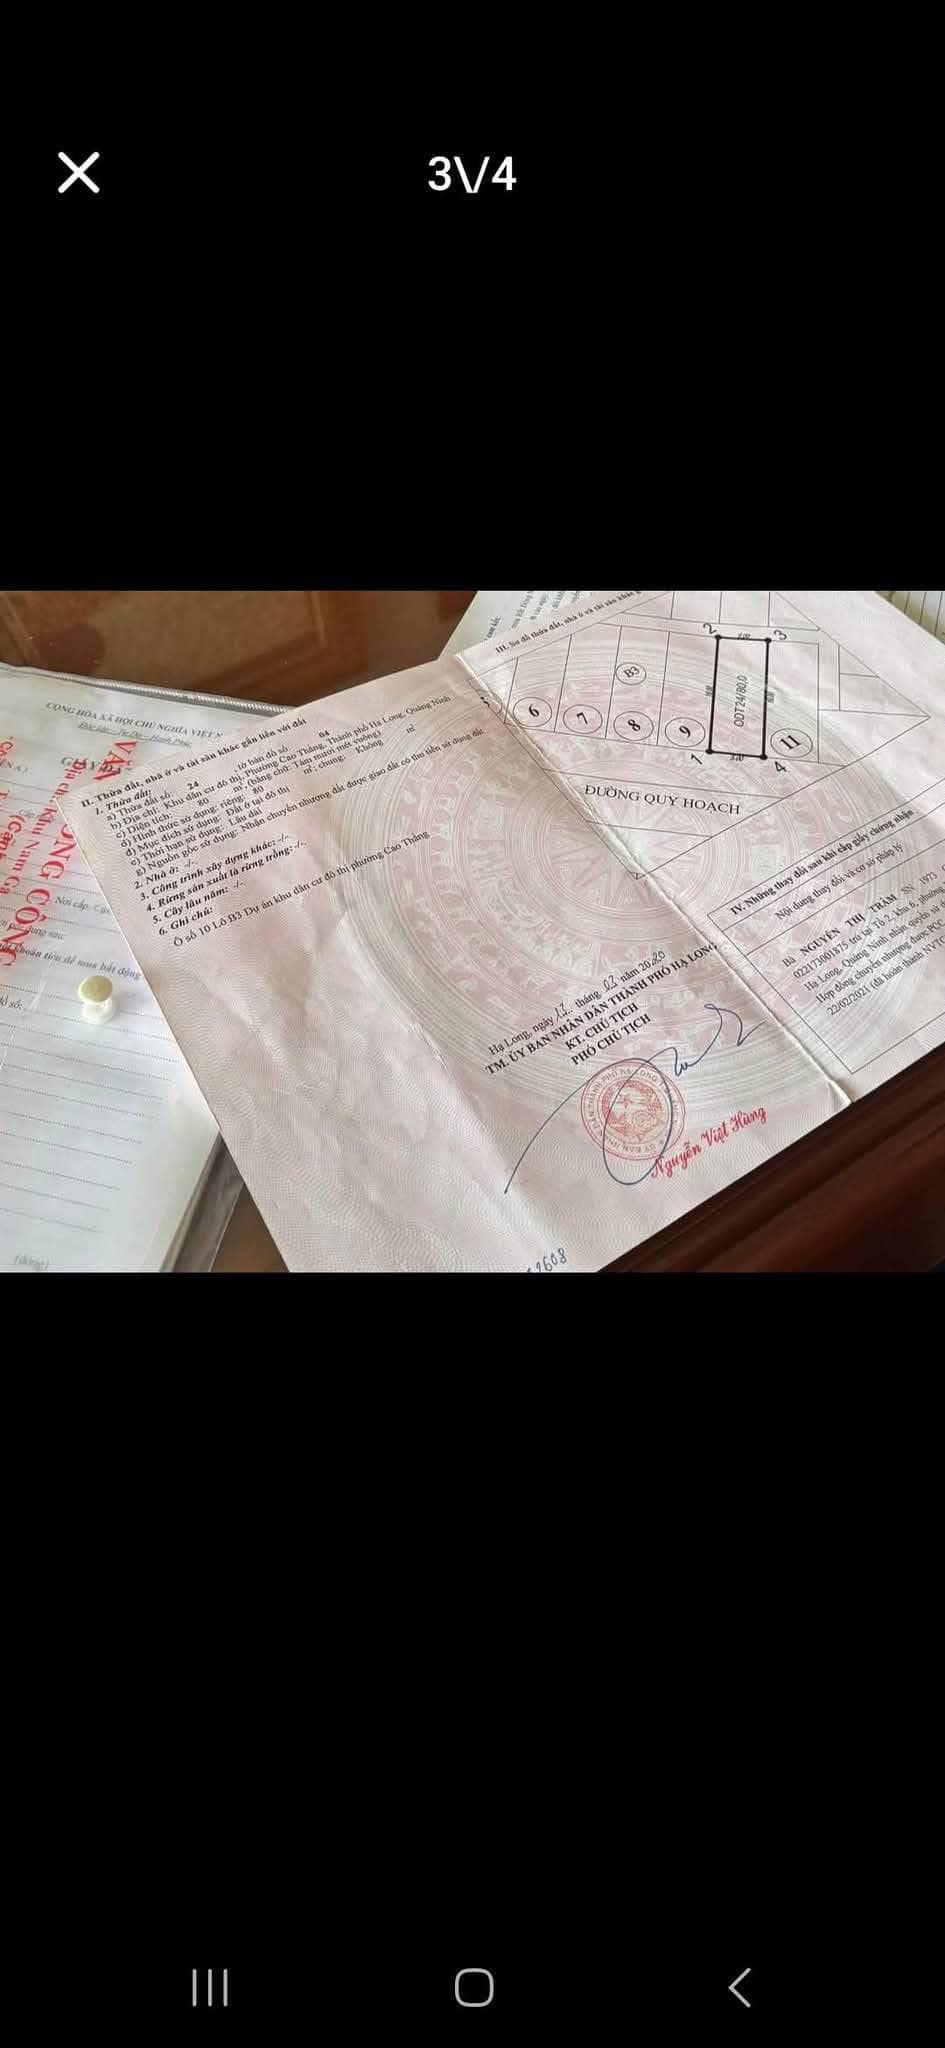 3\/4
CỘNG HÒA XÃ HỘI CHỦ NGHĨA VIỆT N
Độc lập - Tự Do - Hạnh Phúc
II. Thửa đất, nhà ở và tài sản khác gắn liền với đất
1. Thửa đất:
a) Thửa đất số: 24 tờ bản đồ số: 04
b) Địa chỉ: Khu dân cư đô thị, Phường Cao Thắng, Thành phố Hạ Long, Quảng Ninh
c) Diện tích: 80 m², (bằng chữ: Tám mươi mét vuông)
d) Hình thức sử dụng: riêng: 80 m²; chung: Không m²
đ) Mục đích sử dụng: Đất ở tại đô thị
e) Thời hạn sử dụng: Lâu dài
g) Nguồn gốc sử dụng: Nhận chuyển nhượng đất được giao đất có thu tiền sử dụng đất
2. Nhà ở: -/-
3. Công trình xây dựng khác: -/-
4. Rừng sản xuất là rừng trồng: -/-
5. Cây lâu năm: -/-
6. Ghi chú:
Ô số 10 Lô B3 Dự án khu dân cư đô thị phường Cao Thắng
Hạ Long, ngày 17 tháng 03 năm 2020
TM. ỦY BAN NHÂN DÂN THÀNH PHỐ HẠ LONG
KT. CHỦ TỊCH
PHÓ CHỦ TỊCH
Nguyễn Việt Hùng
2608
III. Sơ đồ thửa đất, nhà ở và tài sản khác g
2 3
B3
6 7 8 9
ODT24/80,0
11
1 4
ĐƯỜNG QUY HOẠCH
IV. Những thay đổi sau khi cấp giấy chứng nhận
Nội dung thay đổi và cơ sở pháp lý
Bà NGUYỄN THỊ TRÂM SN 1973
022173001875 trú tại Tổ 2, khu 6, phường
Hạ Long, Quảng Ninh nhận quyền sử d
Hợp đồng chuyển nhượng được PCC
22/02/2021 (đã hoàn thành NVTC